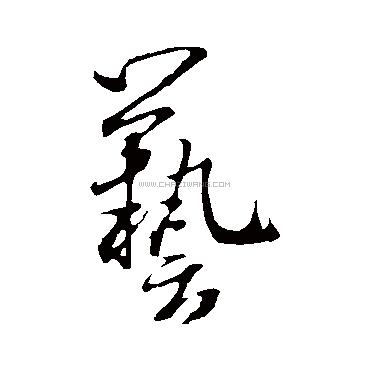 藝
WWW.CHAZIWANG.COM